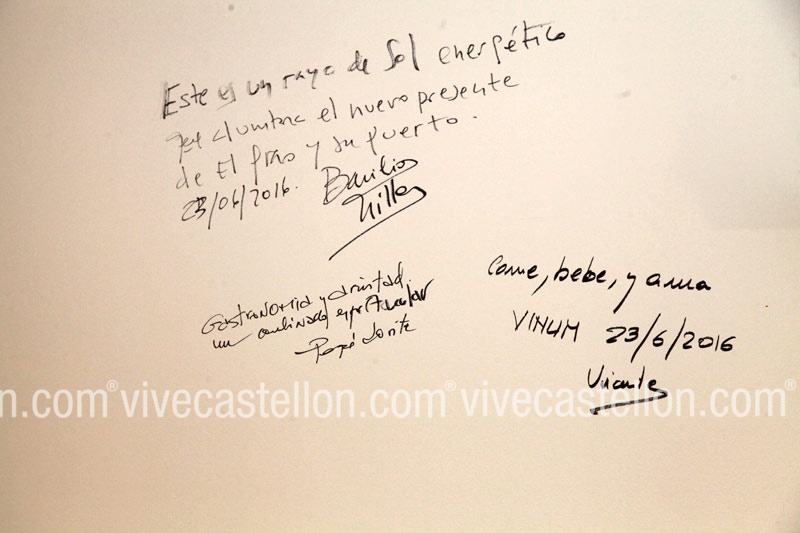 Este es un rayo de Sol energético
que alumbra el nuevo presente
de El grao y su puerto.
23/06/2016.
Gastronomía y amistad.
un combinado espectacular
Pepé
Come, bebe, y ama
VINUM 23/6/2016
Vicente
n.com® vivecastellon.com® vivecastellon.com®